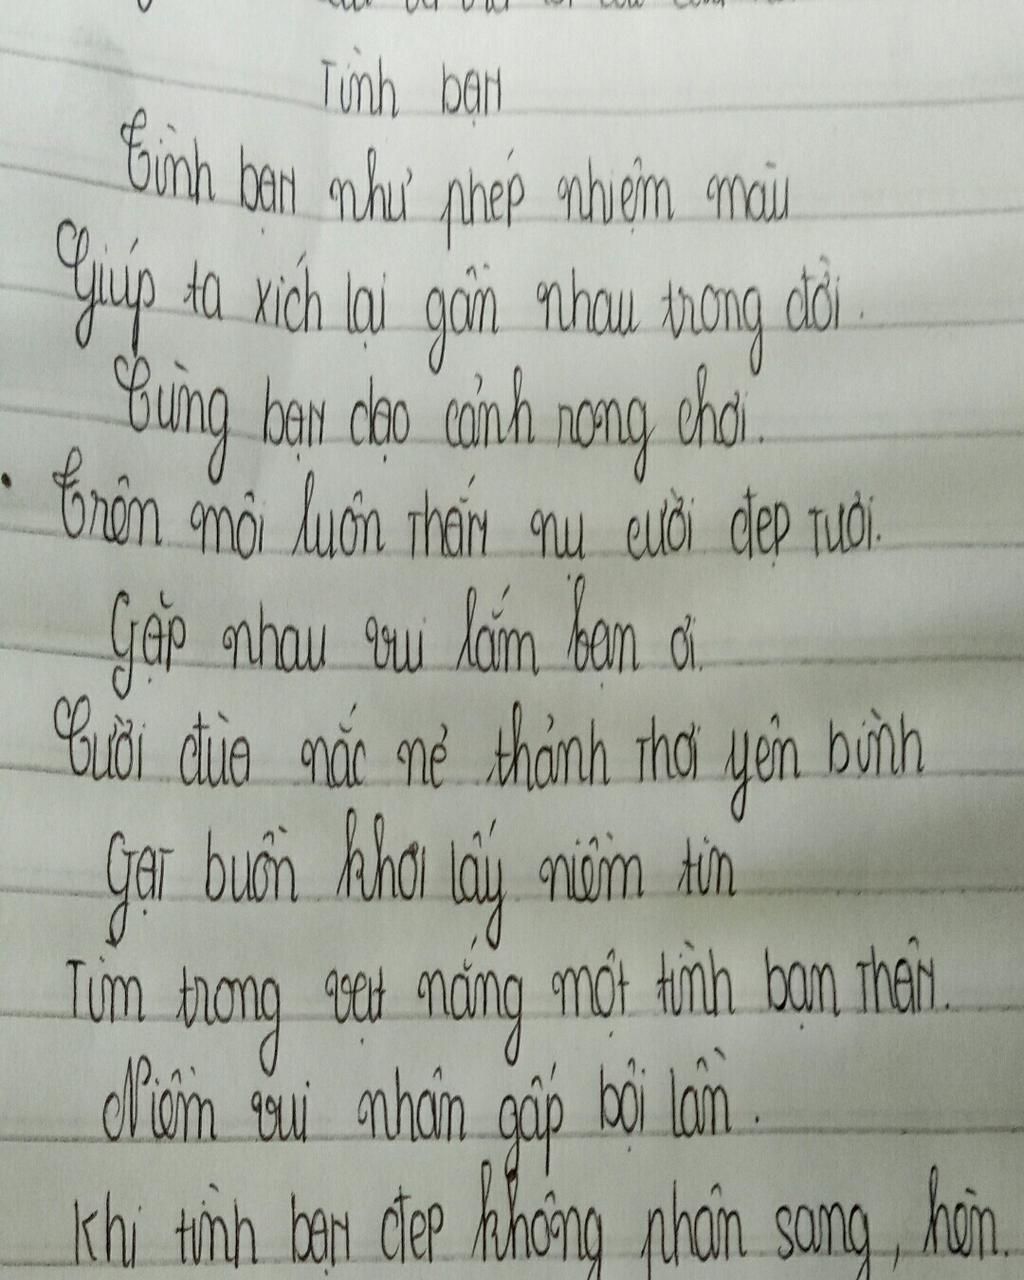 Tình bạn
Tình bạn như phép nhiệm màu
Giúp ta xích lại gần nhau trong đời.
Cùng bạn dạo cảnh rong chơi.
Trên môi luôn thắm nụ cười đẹp tươi.
Gặp nhau vui lắm bạn ơi.
Cười đùa nắc nẻ thảnh thơi yên bình
Gạt buồn khơi lấy niềm tin
Tìm trong vẹt nắng một tình bạn thân.
Niềm vui nhân gấp bội lần.
Khi tình bạn đẹp không phân sang, hèn.